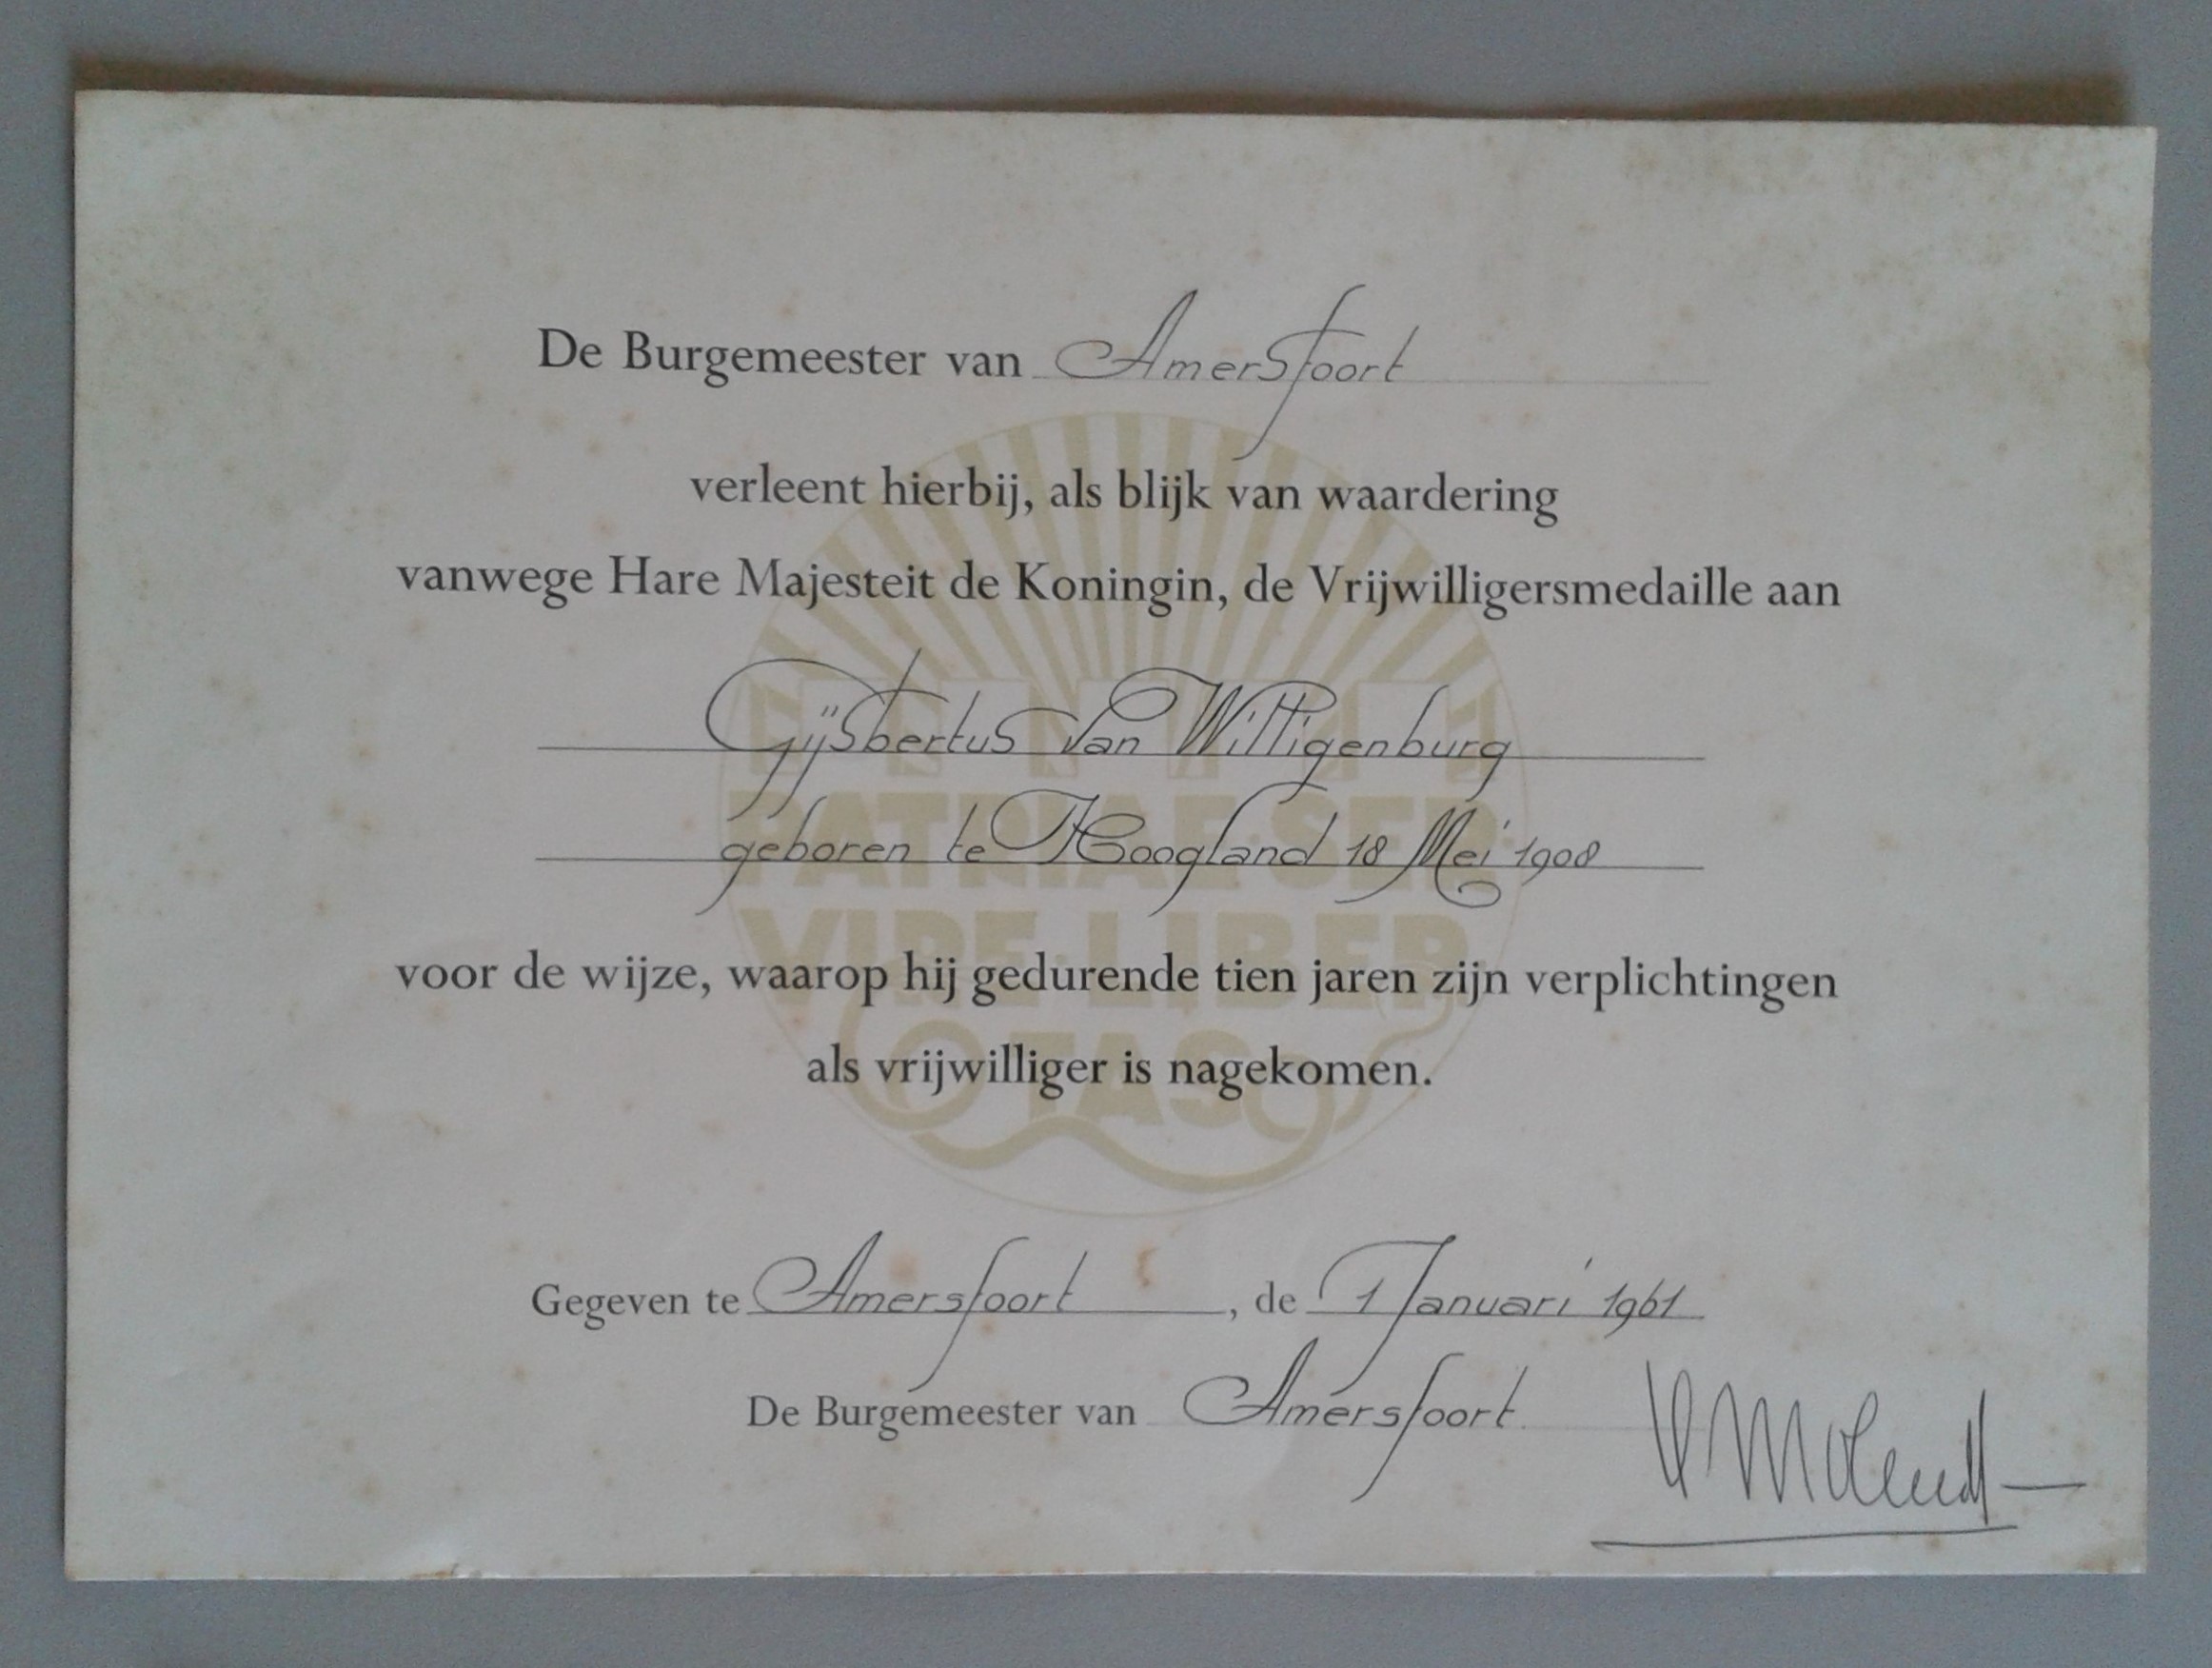 De Burgemeester van Amersfoort
verleent hierbij, als blijk van waardering
vanwege Hare Majesteit de Koningin, de Vrijwilligersmedaille aan
Gijsbertus van Willigenburg
geboren te Hoogland 18 Mei 1908
PATRIAE·SER
VIRE·LIBER
TAS
voor de wijze, waarop hij gedurende tien jaren zijn verplichtingen
als vrijwilliger is nagekomen.
Gegeven te Amersfoort, de 1 Januari 1961
De Burgemeester van Amersfoort